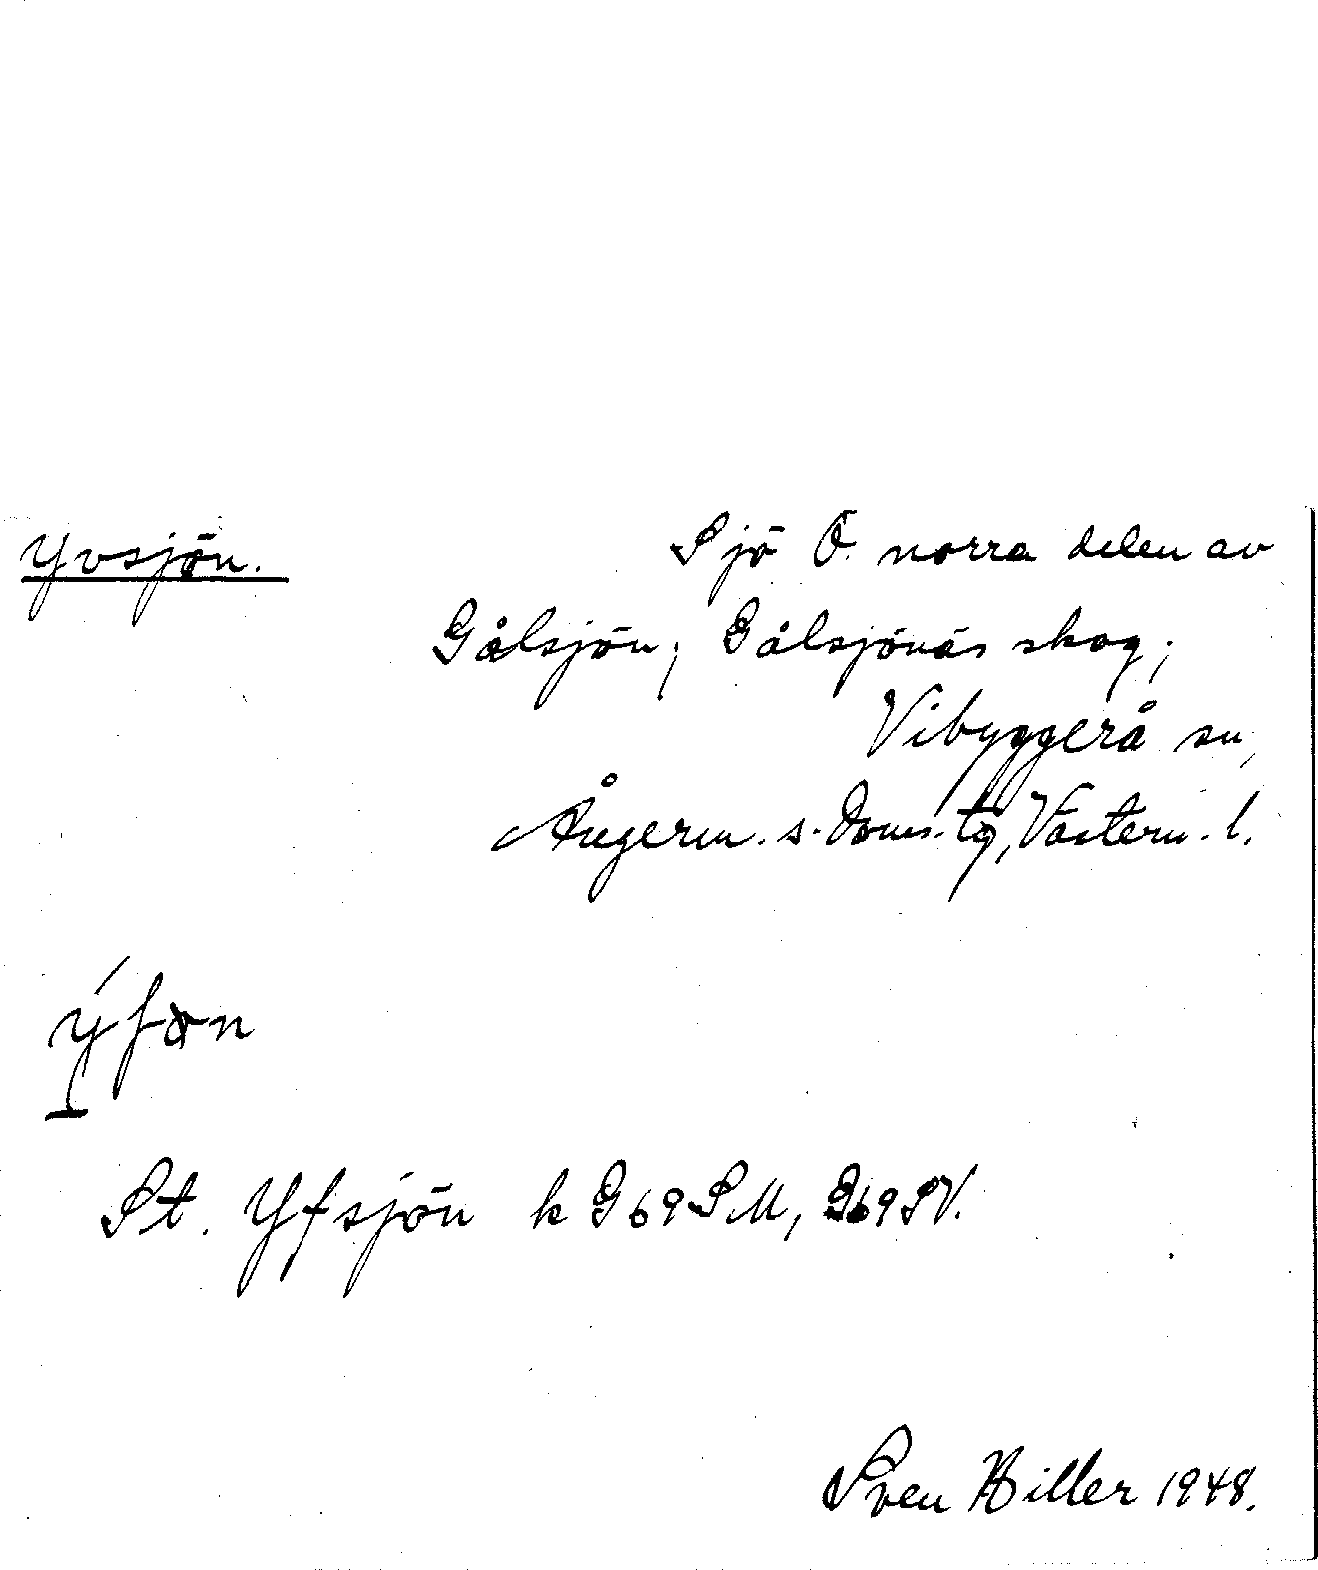 Yvsjön.
Sjö Ö. norra delen av
Gålsjön; Gålsjönäs skog;
Vibyggerå sn,
Ångerm. s. doms. tg, Västern. l.
St. Yfsjön k G69SM, G69SV.
Sven Hiller 1948.